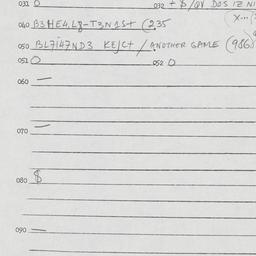 031 O 032 + $/QV DOS IZ NI
X...
040 B3HE4.L8-T3N1S+ (235
050 BL7i47ND3 KEJC+ / ANOTHER GAME (986
051 O 052 O
060 —
070 —
080 $
090 —